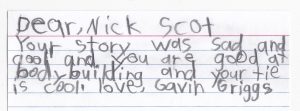 Dear, Nick Scot
Your story was sad and
cool and you are good at
body building and your tie
is cool! love, Gavin Griggs